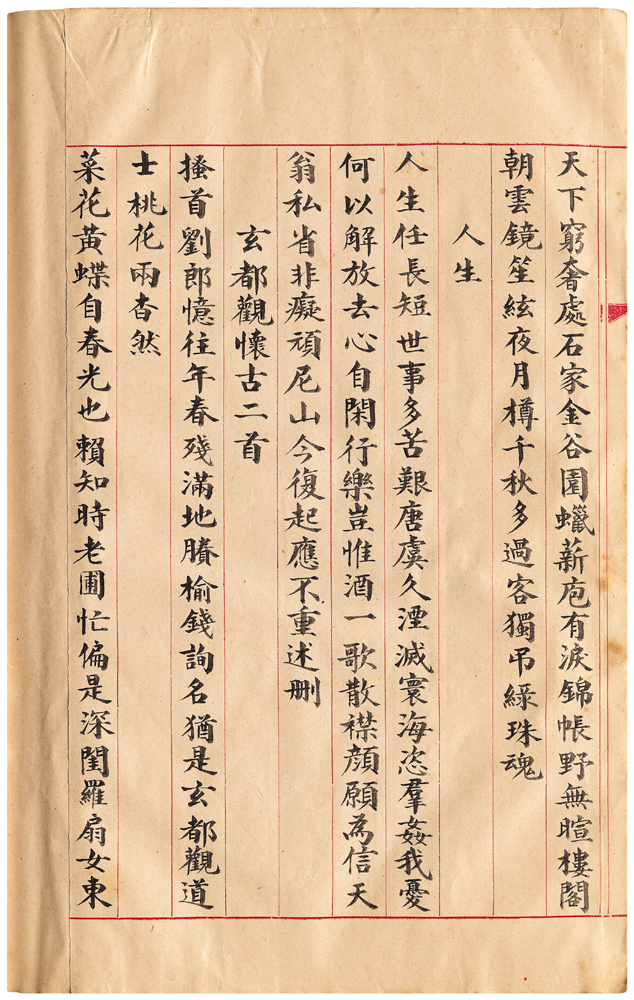 天下窮奢處石家金谷園蠟薪庖有淚錦帳野無暄樓閣
朝雲鏡笙絃夜月樽千秋多過客獨弔綠珠魂
人生
人生任長短世事多苦艱唐虞久湮滅寰海恣羣姦我憂
何以解放去心自閑行樂豈惟酒一歌散襟顏願為信天
翁私省非癡頑尼山今復起應不重述刪
玄都觀懷古二首
搔首劉郎憶往年春殘滿地賸榆錢詢名猶是玄都觀道
士桃花兩杳然
菜花黃蝶自春光也賴知時老圃忙偏是深閨羅扇女東